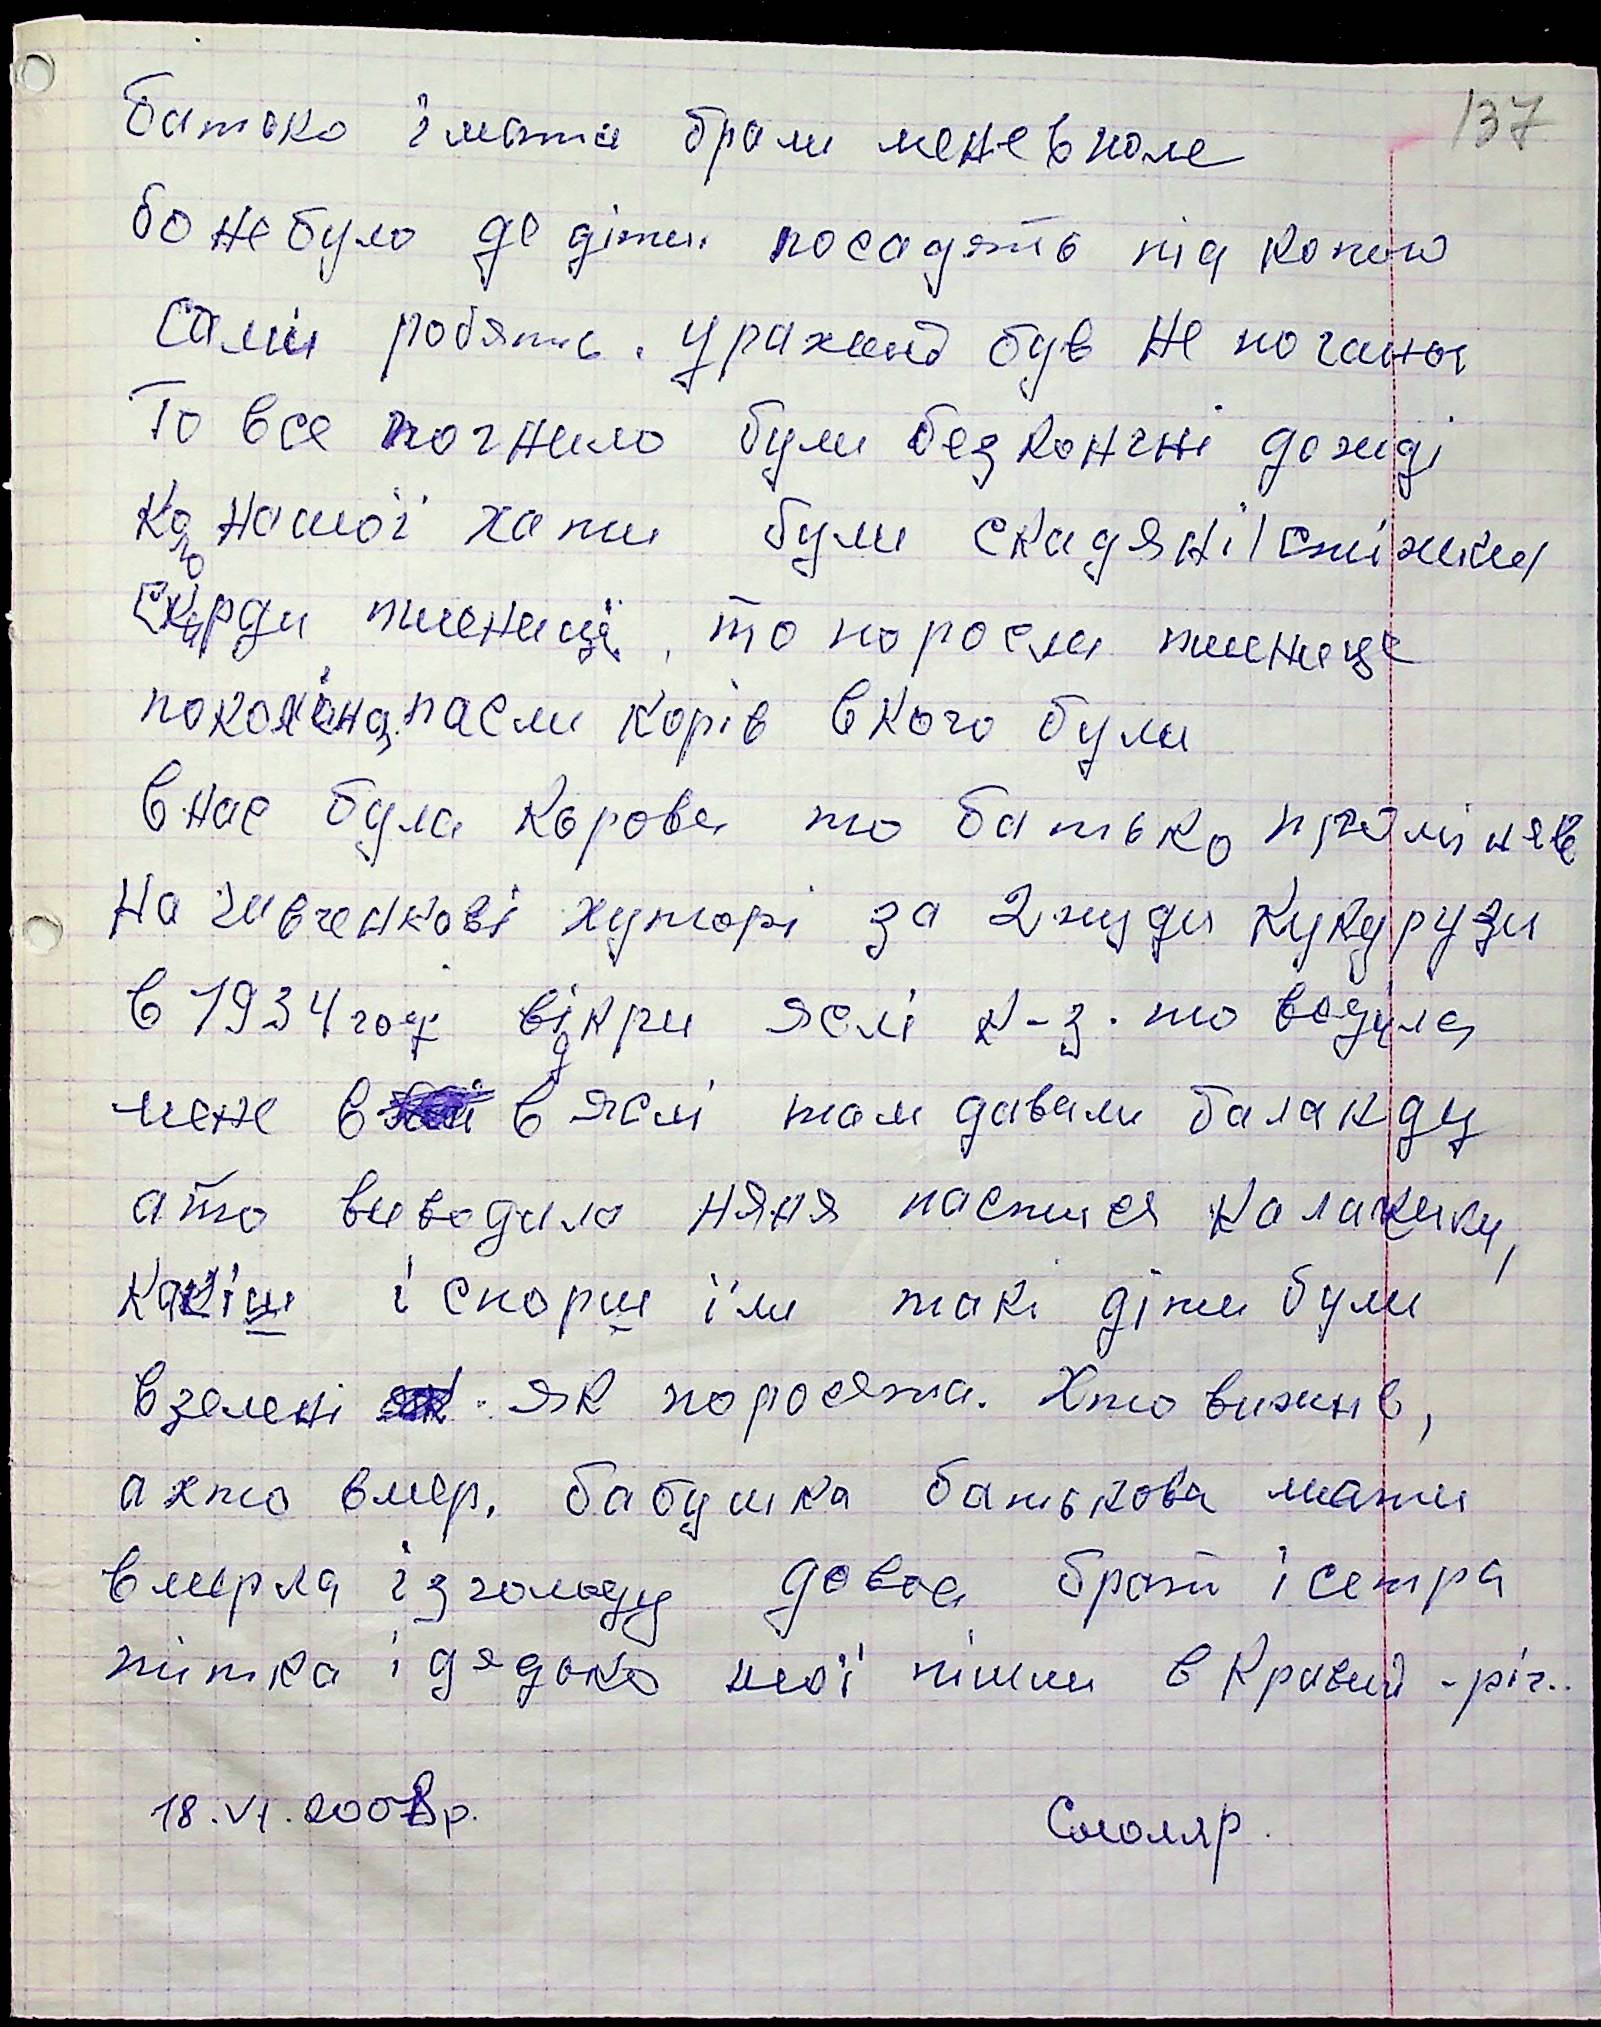 137
батько і мати брали мене в поле
бо небуло де діти посадять під копою
Самі роблять. уражай був не поганой
То все погнило були безкончні дожді
коло нашої хати були скадяні стіжки
Скирди пшениці, то поросли пшеница
поколіна, пасли корів в кого були
внас була корова то батько проміняв
на Шевченкові хуторі за 2 пуди кукурузи
в 1934 год відкри яслі к-з. то водила
мене в в яслі там давали баланду
ато виводила няня пастися калачики,
і спориш їли такі діти були
взелені як поросята. Хто вижив,
а хто вмер. бабушка батькова мати
вмерла із голоду двоє брат і сетра
тітка і дядько мої пішли в Кривий-ріг..
18.VI.2008р.
Смоляр.